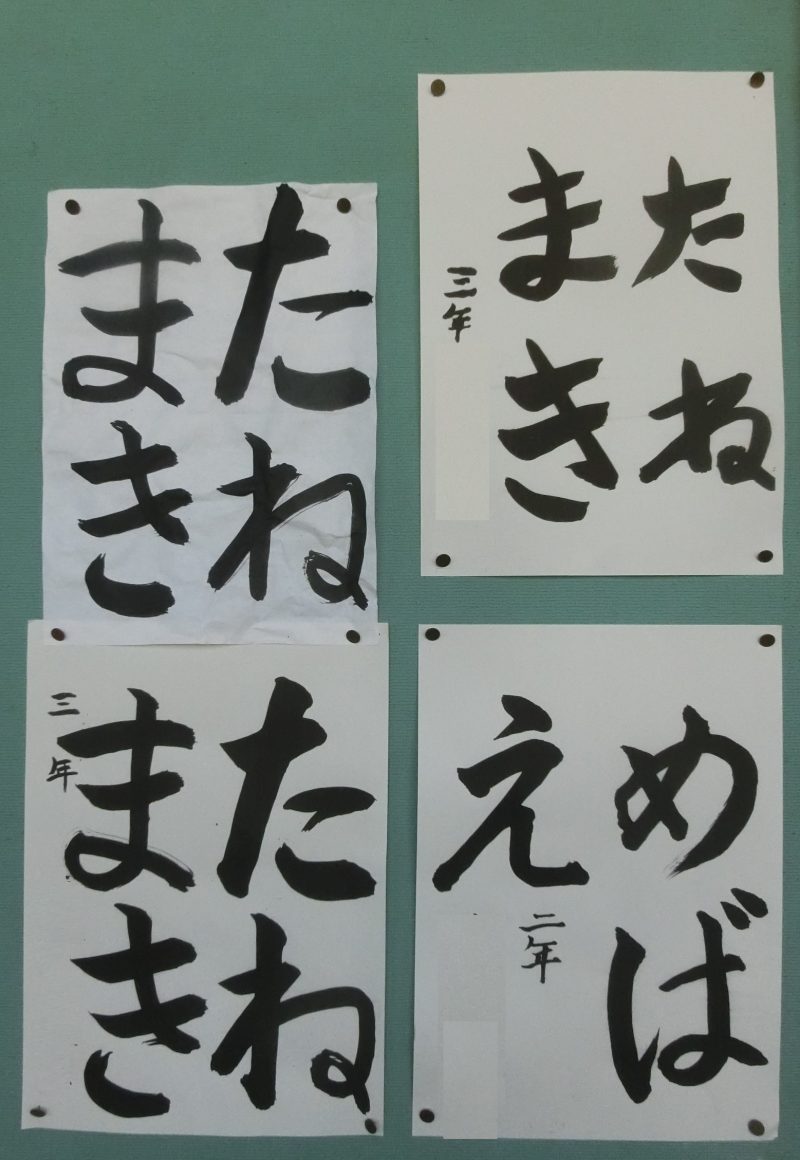 たね
まき
三年
たね
まき
たね
まき
三年
めば
え
二年